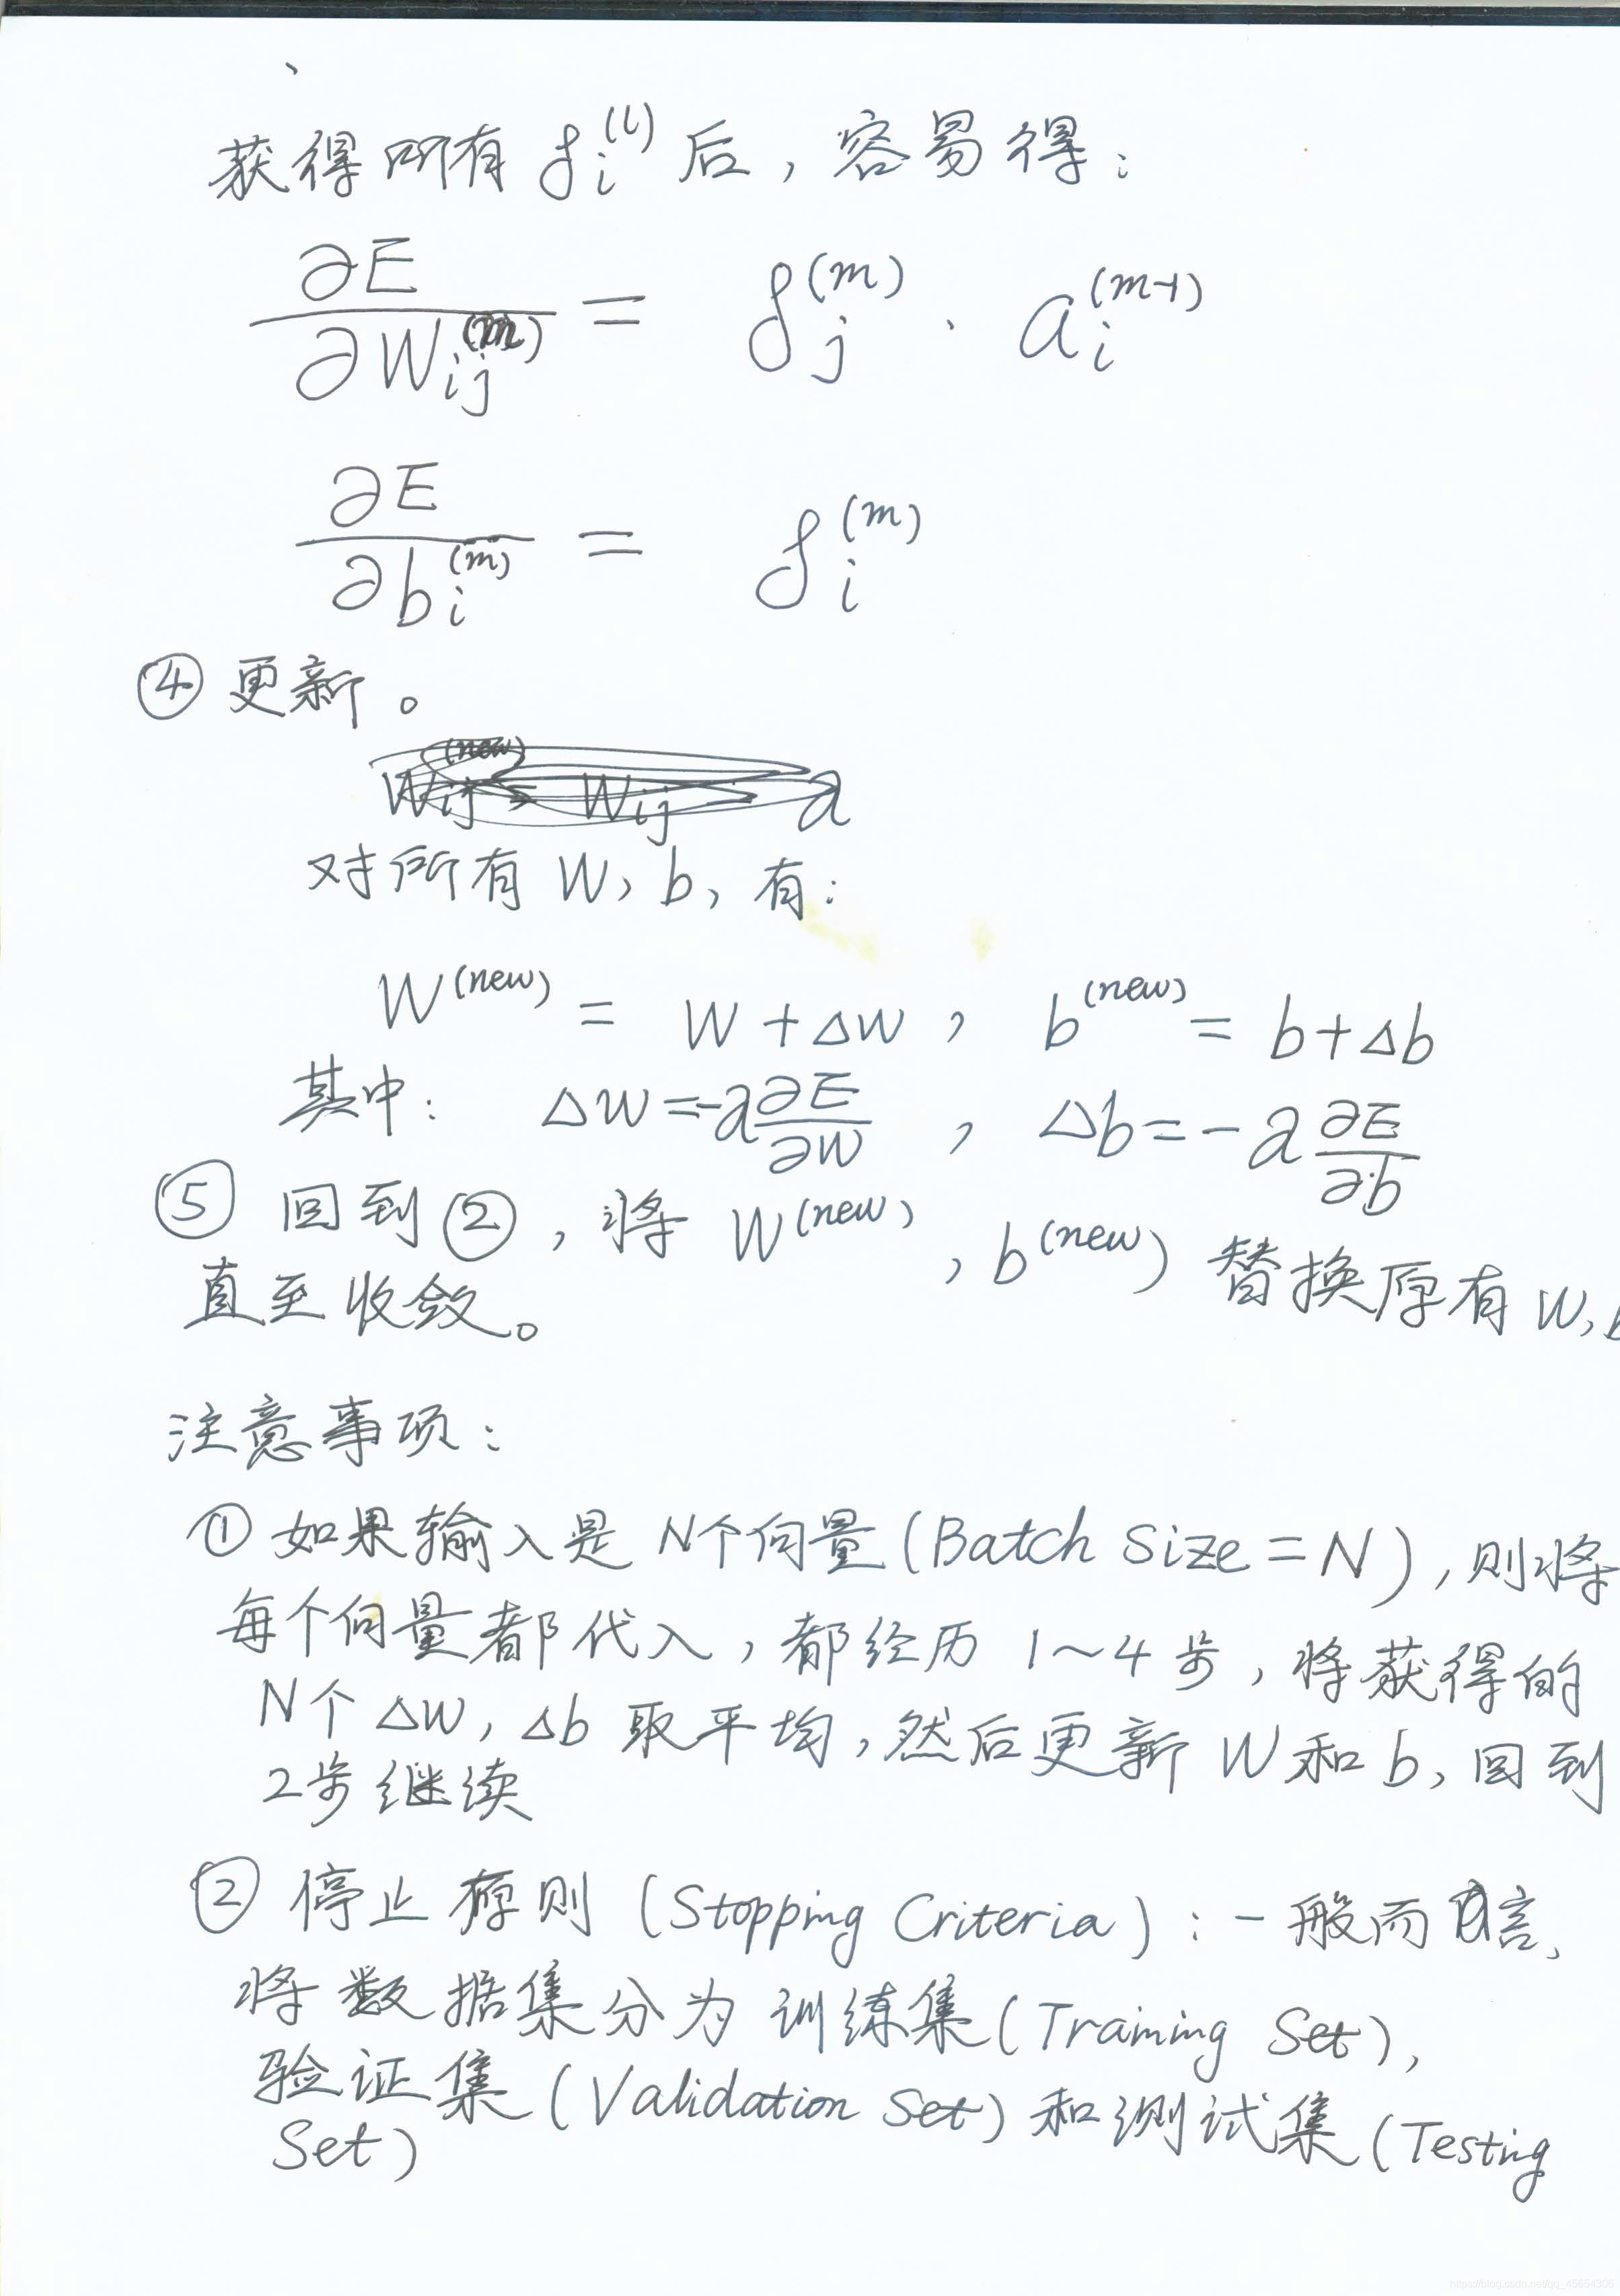 获得所有 δᵢ⁽ˡ⁾ 后，容易得：
∂E/∂Wᵢⱼ⁽ᵐ⁾ = δⱼ⁽ᵐ⁾ · aᵢ⁽ᵐ⁻¹⁾
∂E/∂bᵢ⁽ᵐ⁾ = δᵢ⁽ᵐ⁾
④ 更新。
对所有 W, b, 有：
W^(new) = W + ΔW , b^(new) = b + Δb
其中： ΔW = -α ∂E/∂W , Δb = -α ∂E/∂b
⑤ 回到②，将 W^(new), b^(new) 替换原有 W, b
直至收敛。
注意事项：
① 如果输入是 N个向量(Batch Size = N)，则将
每个向量都代入，都经历 1~4 步，将获得的
N个 ΔW, Δb 取平均，然后更新 W 和 b, 回到
2步继续
② 停止原则 (Stopping Criteria)：一般而言，
将数据集分为训练集(Training Set)，
验证集(Validation Set)和测试集(Testing
Set)
https://blog.csdn.net/qq_45654306